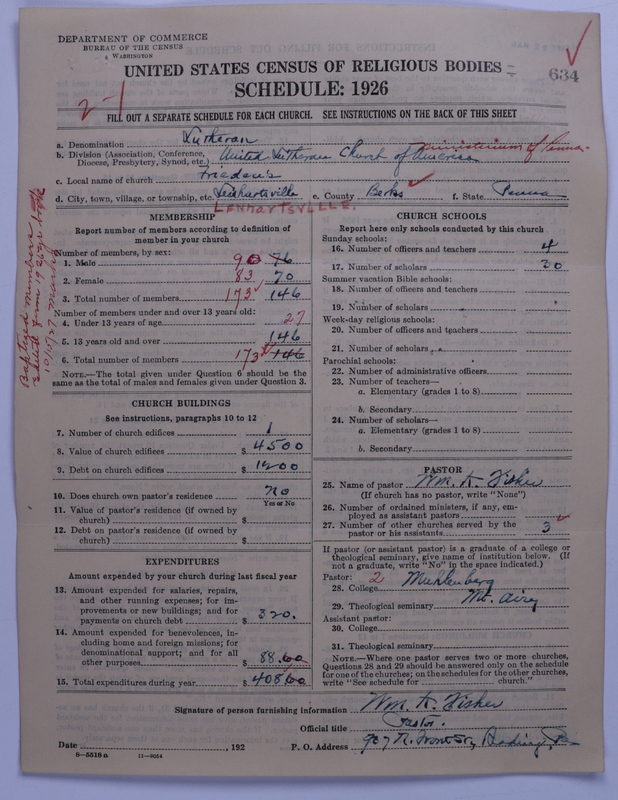 DEPARTMENT OF COMMERCE
BUREAU OF THE CENSUS
WASHINGTON
UNITED STATES CENSUS OF RELIGIOUS BODIES
SCHEDULE: 1926
634
2-1
FILL OUT A SEPARATE SCHEDULE FOR EACH CHURCH. SEE INSTRUCTIONS ON THE BACK OF THIS SHEET
a. Denomination Lutheran
b. Division (Association, Conference, Diocese, Presbytery, Synod, etc.) United Lutheran Church of America Ministerium of Penna.
c. Local name of church Friedens
d. City, town, village, or township, etc. Lenhartsville e. County Berks f. State Penna
LENHARTSVILLE.
MEMBERSHIP
Report number of members according to definition of
member in your church
Number of members, by sex:
1. Male 90 76
2. Female 83 70
3. Total number of members 173 146
Number of members under and over 13 years old:
4. Under 13 years of age 27
5. 13 years old and over 146
6. Total number of members 173 146
NOTE.—The total given under Question 6 should be
same as the total of males and females given under Question 3.
Baptized members
10/15/27
CHURCH BUILDINGS
See instructions, paragraphs 10 to 12
7. Number of church edifices 1
8. Value of church edifices $ 4500
9. Debt on church edifices $ 1200
10. Does church own pastor's residence no
Yes or No
11. Value of pastor's residence (if owned by
church) $
12. Debt on pastor's residence (if owned by
church) $
EXPENDITURES
Amount expended by your church during last fiscal year
13. Amount expended for salaries, repairs,
and other running expenses; for im-
provements or new buildings; and for
payments on church debt $ 320.
14. Amount expended for benevolences, in-
cluding home and foreign missions; for
denominational support; and for all
other purposes $ 88.60
15. Total expenditures during year $ 408.60
CHURCH SCHOOLS
Report here only schools conducted by this church
Sunday schools:
16. Number of officers and teachers 4
17. Number of scholars 30
Summer vacation Bible schools:
18. Number of officers and teachers
19. Number of scholars
Week-day religious schools:
20. Number of officers and teachers
21. Number of scholars
Parochial schools:
22. Number of administrative officers
23. Number of teachers—
a. Elementary (grades 1 to 8)
b. Secondary
24. Number of scholars—
a. Elementary (grades 1 to 8)
b. Secondary
PASTOR
25. Name of pastor Wm. K. Fisher
(If church has no pastor, write "None")
26. Number of ordained ministers, if any, em-
ployed as assistant pastors
27. Number of other churches served by the
pastor or his assistants 3
If pastor (or assistant pastor) is a graduate of a college or
theological seminary, give name of institution below. (If
not a graduate, write "No" in the space indicated.)
Pastor: 2
28. College Muhlenberg
29. Theological seminary Mt. Airy
Assistant pastor:
30. College
31. Theological seminary
NOTE.—Where one pastor serves two or more churches,
Questions 28 and 29 should be answered only on the schedule
for one of the churches; on the schedules for the other churches,
write "See schedule for church."
Signature of person furnishing information Wm. K. Fisher
Official title Pastor.
Date , 192 P. O. Address 907 N. Front St., Reading, Pa
8—5518 a 11—9054